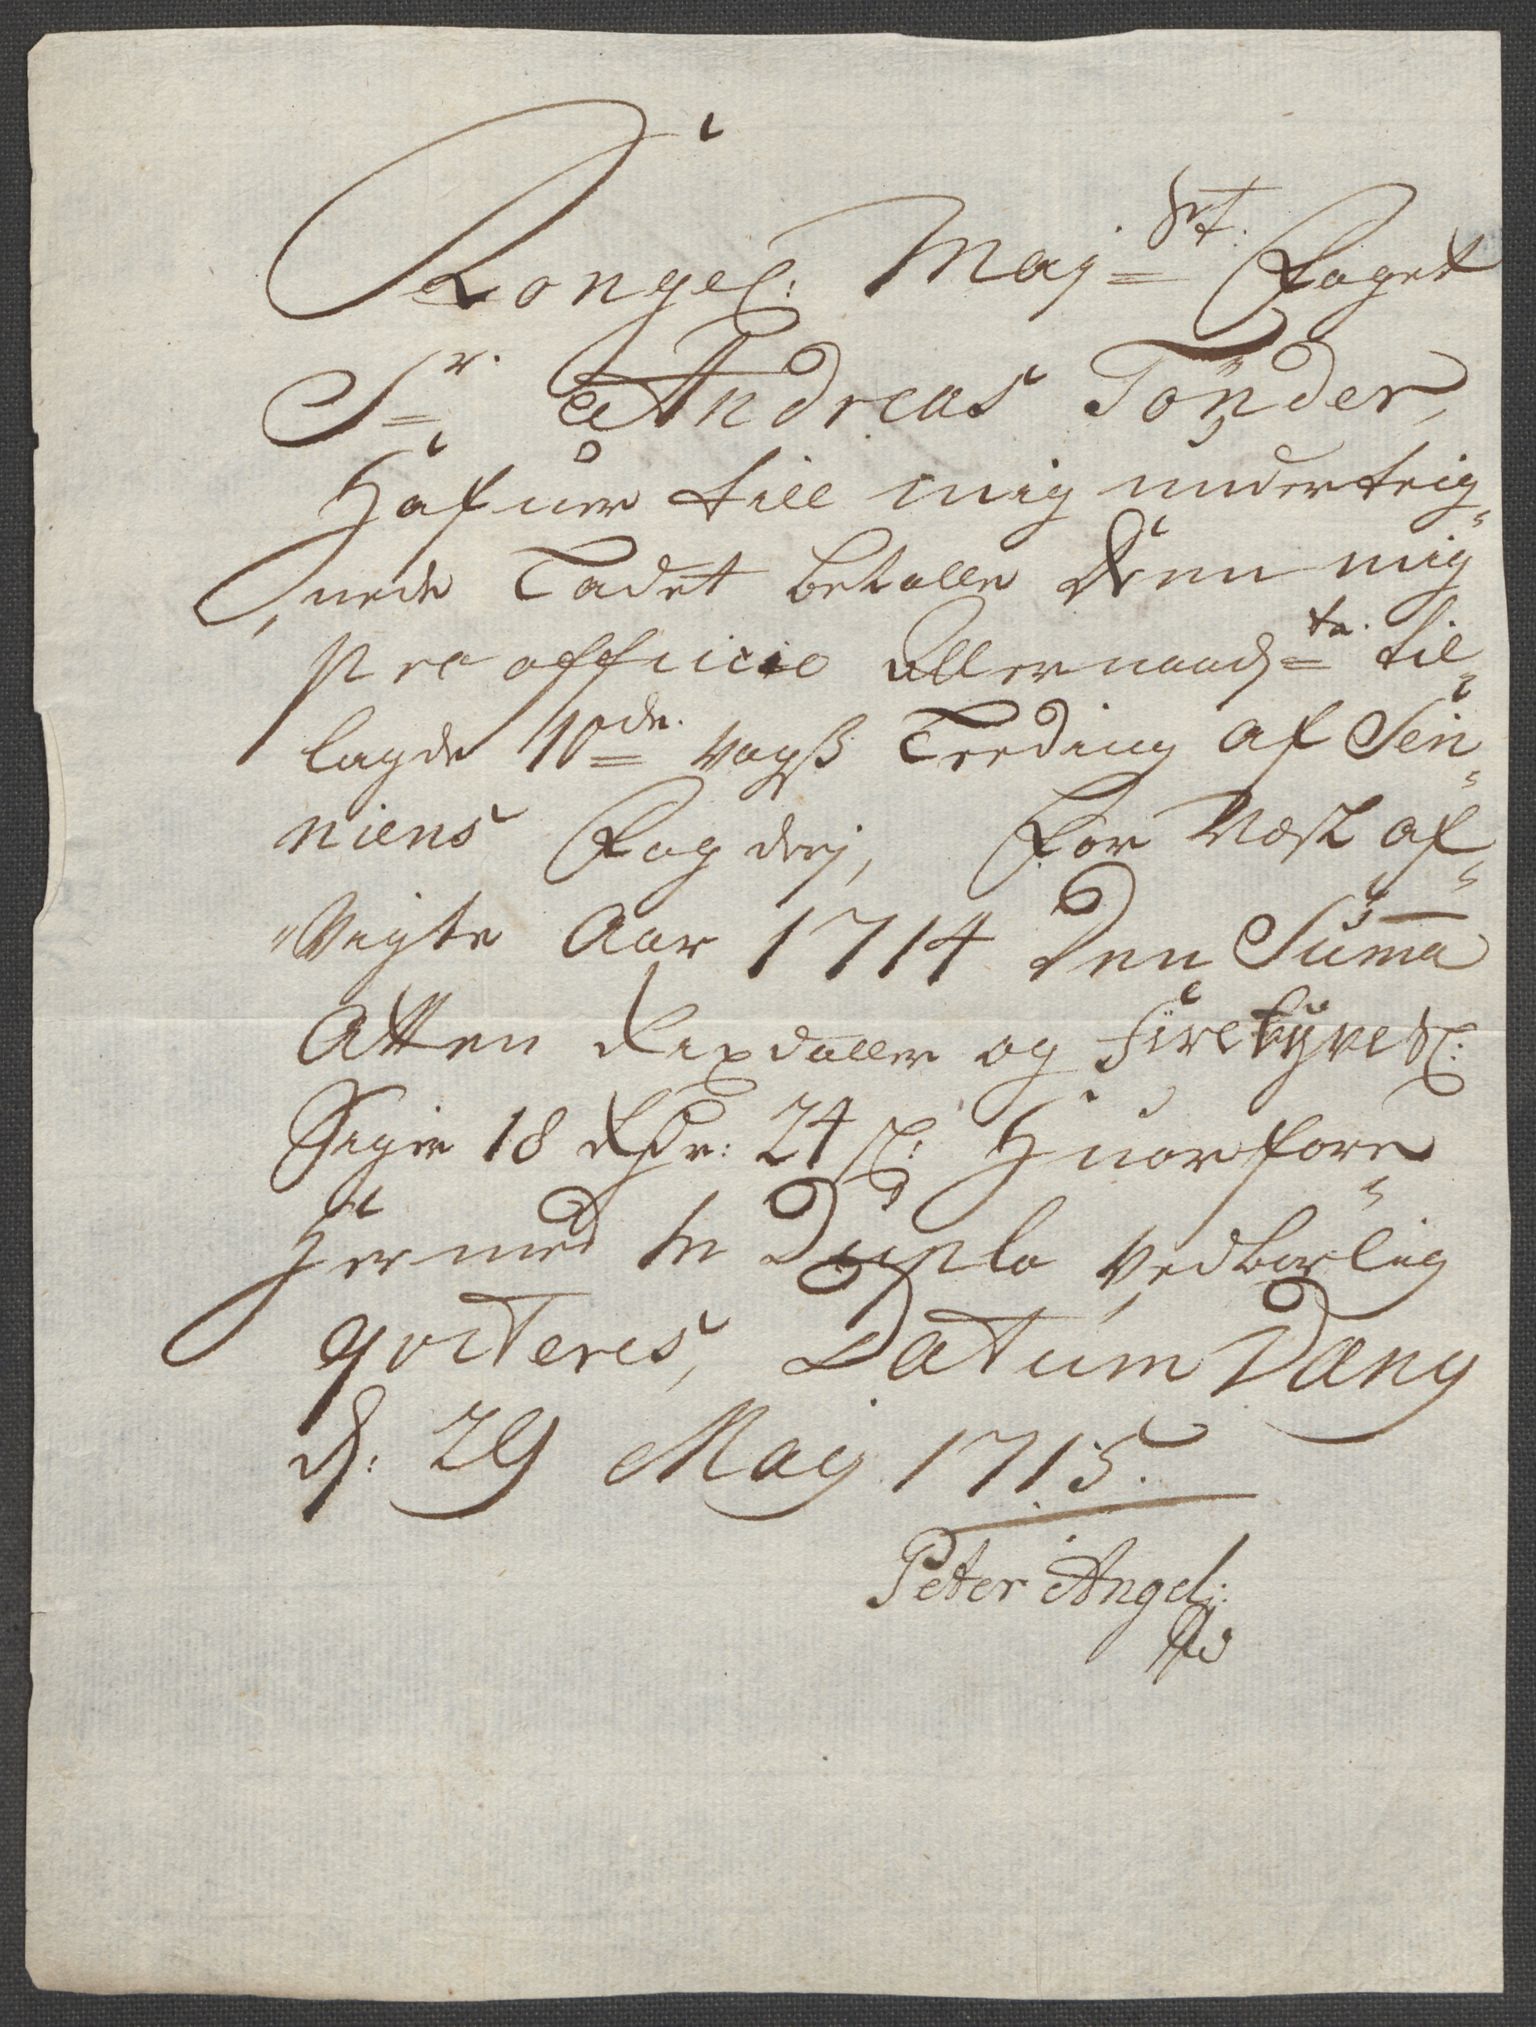 Kongel: Maj=st: Foget
Sr. Andreas Tönder,
Hafuer till mig underteig-
nede Ladet betalle Den mig
pro officio allernaads=te. til-
lagde 10de. vogß Leeding af Sen-
niens Fogderj, For Næst af-
Vigte Aar 1714 Den Summa
Atten Rixdaller og Firetyve ß:
Siger 18 Rdr: 24 ß: Huorfore
Hermed In Duplo Vedbørlig
qvitteres, Datum Dæng
d: 29 Maij 1715.
Peter Angel: